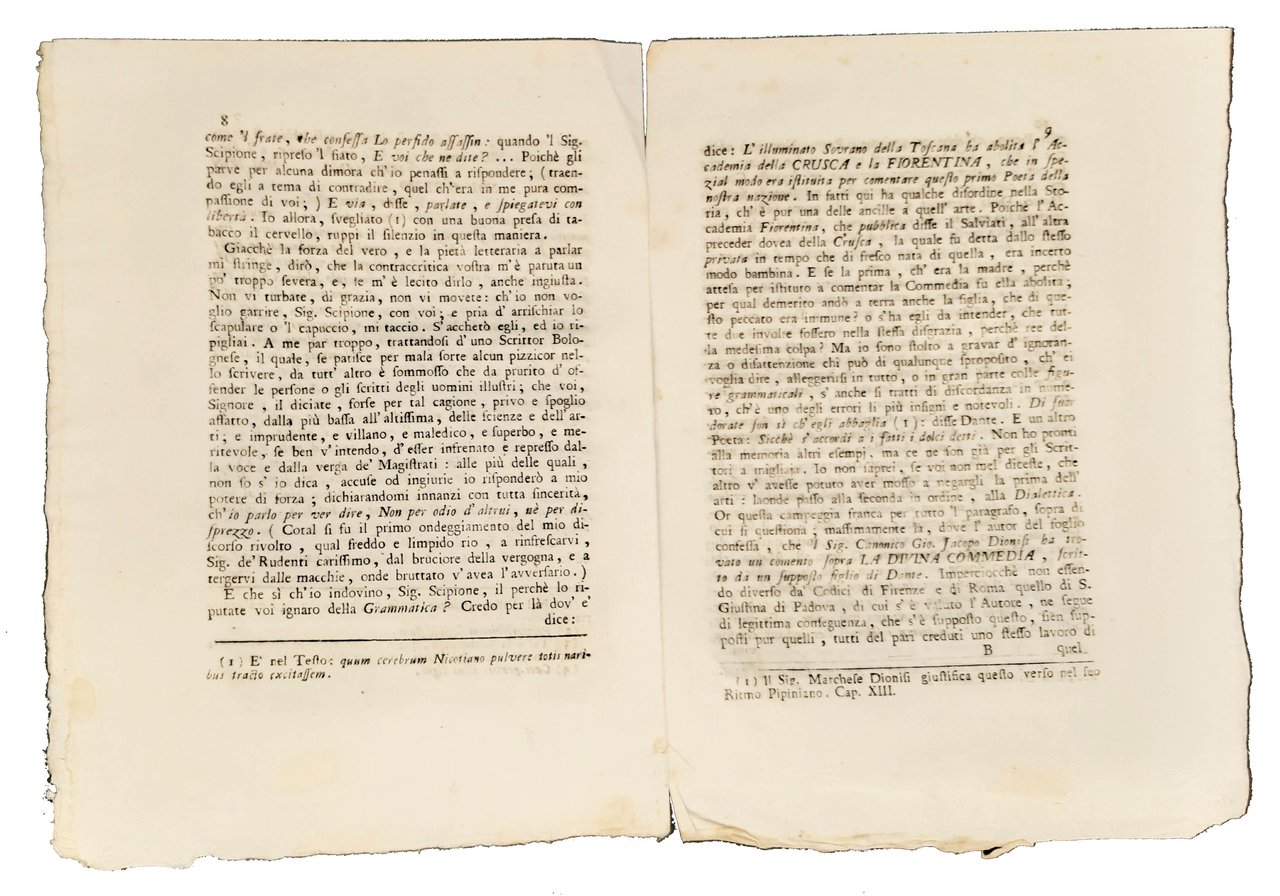 8
come 'l frate, che confeſſa Lo perfido aſſaſſin: quando 'l Sig.
Scipione, ripreſo 'l fiato, E voi che ne dite? ... Poichè gli
parve per alcuna dimora ch'io penaſſi a riſpondere; (traen-
do egli a tema di contradire, quel ch'era in me pura com-
paſſione di voi;) E via, diſſe, parlate, e ſpiegatevi con
libertà. Io allora, ſvegliato (1) con una buona preſa di ta-
bacco il cervello, ruppi il ſilenzio in queſta maniera.
Giacchè la forza del vero, e la pietà letteraria a parlar
mi ſtringe, dirò, che la contraccritica voſtra m'è paruta un
po' troppo ſevera, e, ſe m'è lecito dirlo, anche ingiuſta.
Non vi turbate, di grazia, non vi movete: ch'io non vo-
glio garrire, Sig. Scipione, con voi; e pria d'arriſchiar lo
ſcapulare o 'l capuccio, mi taccio. S'acchetò egli, ed io ri-
pigliai. A me par troppo, trattandoſi d'uno Scrittor Bolo-
gneſe, il quale, ſe patiſce per mala ſorte alcun pizzicor nel-
lo ſcrivere, da tutt'altro è ſommoſſo che da prurito d'of-
fender le perſone o gli ſcritti degli uomini illuſtri; che voi,
Signore, il diciate, forſe per tal cagione, privo e ſpoglio
affatto, dalla più baſſa all'altiſſima, delle ſcienze e dell'ar-
ti; e imprudente, e villano, e maledico, e ſuperbo, e me-
ritevole, ſe ben v'intendo, d'eſſer infrenato e repreſſo dal-
la voce e dalla verga de' Magiſtrati: alle più delle quali,
non ſo s'io dica, accuſe od ingiurie io riſponderò a mio
potere di forza; dichiarandomi innanzi con tutta ſincerità,
ch'io parlo per ver dire, Non per odio d'altrui, nè per di-
ſprezzo. (Cotal ſi fu il primo ondeggiamento del mio di-
ſcorſo rivolto, qual freddo e limpido rio, a rinfreſcarvi,
Sig. de' Rudenti cariſſimo, dal bruciore della vergogna, e a
tergervi dalle macchie, onde bruttato v'avea l'avverſario.)
E che sì ch'io indovino, Sig. Scipione, il perchè lo ri-
putate voi ignaro della Grammatica? Credo per là dov'e'
dice:
(1) E' nel Teſto: quum cerebrum Nicotiano pulvere totis nari-
bus tracto excitaſſem.
9
dice: L'illuminato Sovrano della Toſcana ha abolita l'Ac-
cademia della CRUSCA e la FIORENTINA, che in ſpe-
zial modo era iſtituita per comentare queſto primo Poeta della
noſtra nazione. In fatti qui ha qualche diſordine nella Sto-
ria, ch'è pur una delle ancille a quell'arte. Poichè l'Ac-
cademia Fiorentina, che pubblica diſſe il Salviati, all'altra
preceder dovea della Cruſca, la quale fu detta dallo ſteſſo
privata in tempo che di freſco nata di quella, era incerto
modo bambina. E ſe la prima, ch'era la madre, perchè
atteſa per iſtituto a comentar la Commedia fu ella abolita;
per qual demerito andò a terra anche la figlia, che di que-
ſto peccato era immune? o s'ha egli da intender, che tut-
te due involte foſſero nella ſteſſa diſgrazia, perchè ree del-
la medeſima colpa? Ma io ſono ſtolto a gravar d'ignoran-
za o diſattenzione chi può di qualunque ſpropoſito, ch'ei
voglia dire, alleggerirſi in tutto, o in gran parte colle figu-
re grammaticali, s'anche ſi tratti di diſcordanza in nume-
ro, ch'è uno degli errori li più inſigni e notevoli. Di fuor
dorate ſon sì ch'egli abbaglia (1): diſſe Dante. E un altro
Poeta: Sicchè s'accordi a i fatti i dolci detti. Non ho pronti
alla memoria altri eſempj, ma ce ne ſon già per gli Scrit-
tori a migliaja. Io non ſaprei, ſe voi non mel diceſte, che
altro v'aveſſe potuto aver moſſo a negargli la prima dell'
arti: laonde paſſo alla ſeconda in ordine, alla Dialettica.
Or queſta campeggia franca per tutto 'l paragrafo, ſopra di
cui ſi queſtiona; maſſimamente là, dove l'autor del foglio
confeſſa, che 'l Sig. Canonico Gio. Jacopo Dioniſi ha tro-
vato un comento ſopra LA DIVINA COMMEDIA, ſcrit-
to da un ſuppoſto figlio di Dante. Imperciocchè non eſſen-
do diverſo da' Codici di Firenze e di Roma quello di S.
Giuſtina di Padova, di cui s'è valuto l'Autore, ne ſegue
di legittima conſeguenza, che s'è ſuppoſto queſto, ſien ſup-
poſti pur quelli, tutti del pari creduti uno ſteſſo lavoro di
B quel
(1) Il Sig. Marcheſe Dioniſi giuſtifica queſto verſo nel ſuo
Ritmo Pipiniano. Cap. XIII.